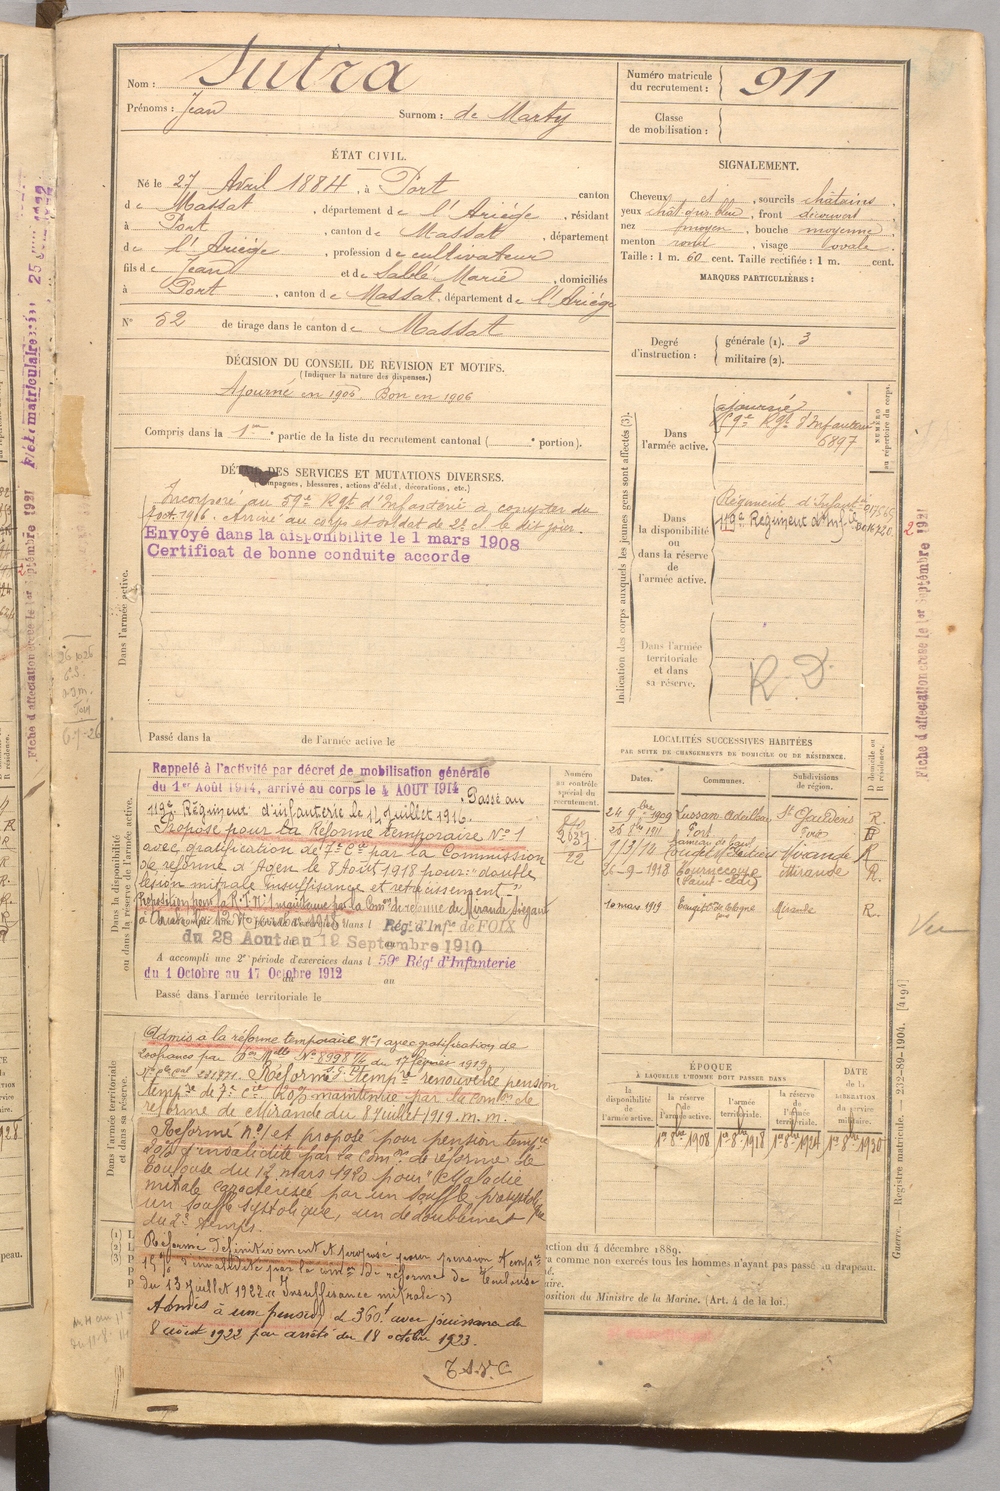 Nom : Sutra
Prénoms : Jean Surnom : de Marty
Numéro matricule du recrutement : 911
Classe de mobilisation :
ÉTAT CIVIL.
Né le 27 Avril 1884, à Port canton
de Massat, département de l'Ariège, résidant
à Port, canton de Massat, département
de l'Ariège, profession de cultivateur
fils de Jean et de Sablé Marie, domiciliés
à Port, canton de Massat, département de l'Ariège
N° 52 de tirage dans le canton de Massat
SIGNALEMENT.
Cheveux et, sourcils châtains,
yeux chât. gris bleu, front découvert,
nez moyen, bouche moyenne,
menton rond, visage ovale.
Taille : 1 m. 60 cent. Taille rectifiée : 1 m. cent.
MARQUES PARTICULIÈRES :
Degré d'instruction : générale (1). 3
militaire (2).
DÉCISION DU CONSEIL DE RÉVISION ET MOTIFS.
(Indiquer la nature des dispenses.)
Ajourné en 1905 Bon en 1906
Compris dans la 1re partie de la liste du recrutement cantonal ( e portion).
DÉTAIL DES SERVICES ET MUTATIONS DIVERSES.
(Campagnes, blessures, actions d'éclat, décorations, etc.)
Dans l'armée active.
Incorporé au 59e Rgt d'Infanterie à compter du
8 oct. 1906. Arrivé au corps et soldat de 2e cl. le dit jour.
Envoyé dans la disponibilite le 1 mars 1908
Certificat de bonne conduite accorde
Passé dans la de l'armée active le
Indication des corps auxquels les jeunes gens sont affectés (3).
NUMÉRO au répertoire du corps.
Dans l'armée active.
ajourné
59e Rgt d'Infanterie
6897
Dans la disponibilité ou dans la réserve de l'armée active.
Régiment d'Infant.
119e Régiment d'Inf.
Dans l'armée territoriale et dans sa réserve.
R.D.
LOCALITÉS SUCCESSIVES HABITÉES
PAR SUITE DE CHANGEMENTS DE DOMICILE OU DE RÉSIDENCE.
Dates. Communes. Subdivisions de région. D domicile ou R résidence.
24 9bre 1909 Lussan-Adeilhac St Gaudens R
1911 Port Foix
9/3/14 Mirande R
26-9-1918 Tournecoupe (Saint-Clar) Mirande R.
10 mars 1919 Mirande R.
Dans la disponibilité ou dans la réserve de l'armée active.
Numéro au contrôle spécial du recrutement.
22
Rappelé à l'activité par décret de mobilisation générale
du 1er Août 1914, arrivé au corps le 4 AOUT 1914. Passé au
119e Régiment d'infanterie le 14 Juillet 1916.
Proposé pour la Réforme temporaire N° 1
avec gratification de 7e Cie par la Commission
de réforme d'Agen le 8 Août 1918 pour: "double
lésion mitrale insuffisance et rétrécissement"
Proposition pour la R.T. N° 1 maintenue par la Comon de réforme de Mirande siégeant
12 Novembre 1918
Régt d'Infie de FOIX
du 28 Aout au 19 Septembre 1910
A accompli une 2e période d'exercices dans l 59e Régt d'Infanterie
du 1 Octobre au 17 Octobre 1912 au
Passé dans l'armée territoriale le
Dans l'armée territoriale et dans sa réserve.
Admis à la réforme temporaire N° 1 avec gratification de
200 francs par Don Mlle N° 8998 du 17 février 1919
Réforme tempre renouvelée pension
tempre de 7e Cie 20% maintenue par la Comon de
réforme de Mirande du 8 juillet 1919. m.m.
Réformé N° 1 et proposé pour pension tempre
20% d'invalidité par la Comon de réforme de
Toulouse du 12 mars 1920 pour "Maladie
mitrale caractérisée par un souffle présystolique
un souffle systolique, un dédoublement
du 2e temps.
Réformé définitivement et proposé pour pension tempre
15% d'invalidité par la comon de réforme de Toulouse
du 13 juillet 1922 "Insuffisance mitrale"
Admis à une pension de 360f avec jouissance du
8 août 1922 par arrêté du 18 octobre 1923.
T.S.V.P.
ÉPOQUE
À LAQUELLE L'HOMME DOIT PASSER DANS
la disponibilité de l'armée active. la réserve de l'armée active. l'armée territoriale. la réserve de l'armée territoriale. DATE de la LIBÉRATION du service militaire.
1er 8bre 1908 1er 8bre 1918 1er 8bre 1924 1er 8bre 1930
ction du 4 décembre 1889.
ra comme non exercés tous les hommes n'ayant pas passé au drapeau.
position du Ministre de la Marine. (Art. 4 de la loi.)
Guerre. — Registre matricule. — 212-89-1904. [4194]
Fiche d'affectation creuse le 1er Septembre 1921
Vu
Fiche d'affectation creuse le 1er Septembre 1921 Fiche matriculaire